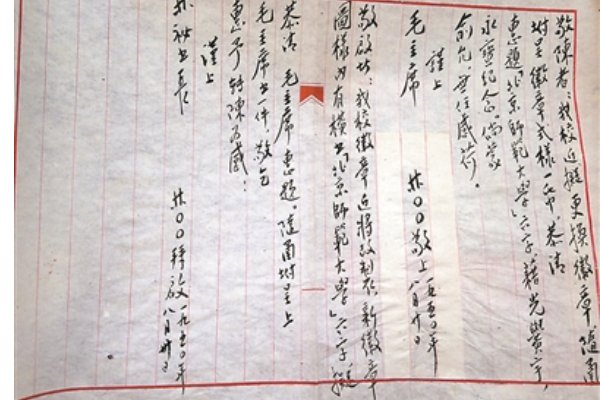 敬陈者：我校近拟更换徽章，随函
附呈徽章式样一纸，恭请
惠题「北京师范大学」六字，藉光黉宇，
永资纪念。倘蒙
俞允，无任感荷。
谨上
毛主席
林〇〇敬上 一九五〇年八月廿日
敬启者：我校徽章近将改制，在新徽章
图样内有横书「北京师範大学」六字，拟
恭请 毛主席惠题。随函附呈上
毛主席书一件，敬乞
惠予转陈为感：
谨上
林秘书长
林〇〇拜启 一九五〇年八月廿日